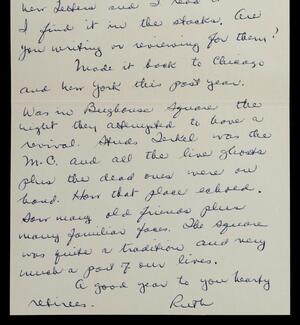 New Letters and I read it
I find it in the stacks. Are
you writing or reviewing for them?
Made it back to Chicago
and New York this past year.
Was in Bughouse Square the
night they attempted to have a
revival. Studs Terkel was the
M.C. and all the live ghosts
plus the dead ones were on
hand. How that place echoed.
Saw many old friends plus
many familiar faces. The square
was quite a tradition and very
much a part of our lives.
A good year to you hearty
retirees. Ruth